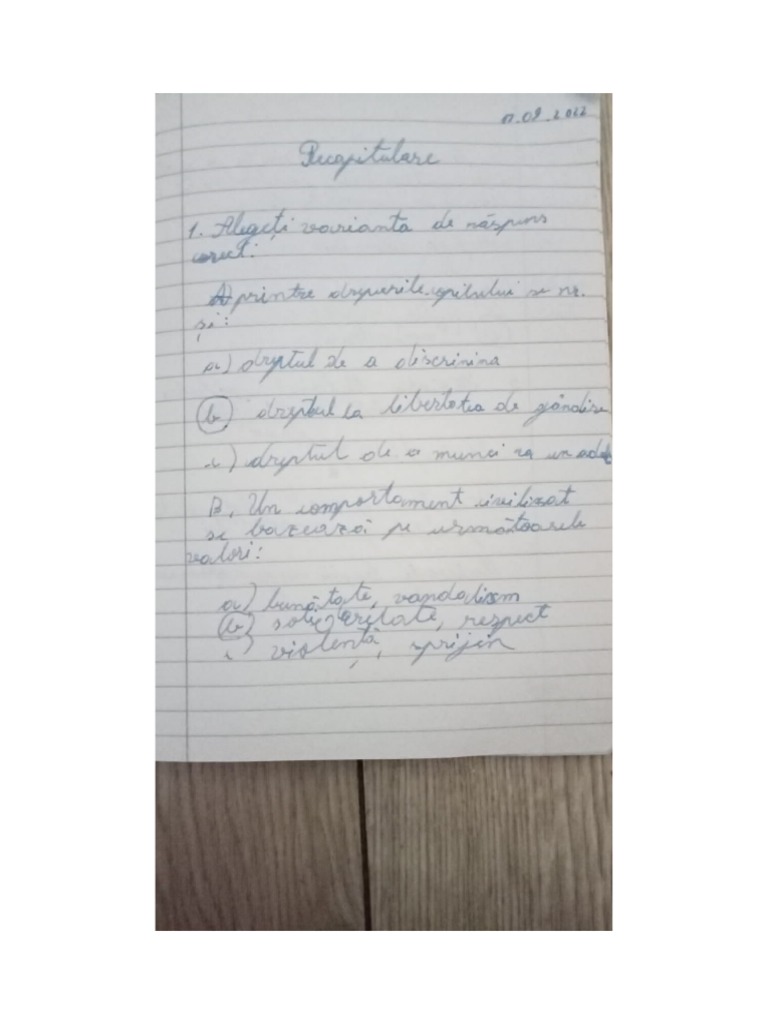 09.2022
Recapitulare
1. Alegeți varianta de răspuns
corect:
A) printre drepturile copilului se nr.
și:
a) dreptul de a discrimina
b) dreptul la libertatea de gândire
c) dreptul de a munci ca un adult
B. Un comportament civilizat
se bazează pe următoarele
valori:
a) bunătate, vandalism
b) solidaritate, respect
c) violență, sprijin